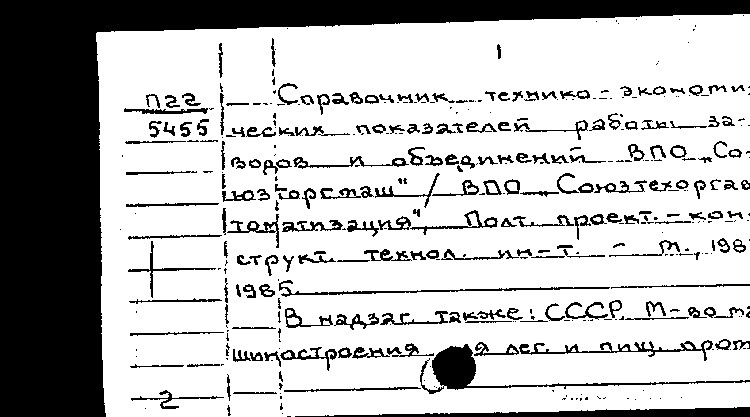 1
П22 Справочник технико-экономи-
5455 ческих показателей работы за-
водов и объединений ВПО „Со-
юзторгмаш" / ВПО „Союзтехоргав
томатизация", Полт. проект.-кон-
структ. технол. ин-т. - м., 198
1985.
В надзаг. также: СССР. М-во ма
шиностроения для лег. и пищ. пром
2